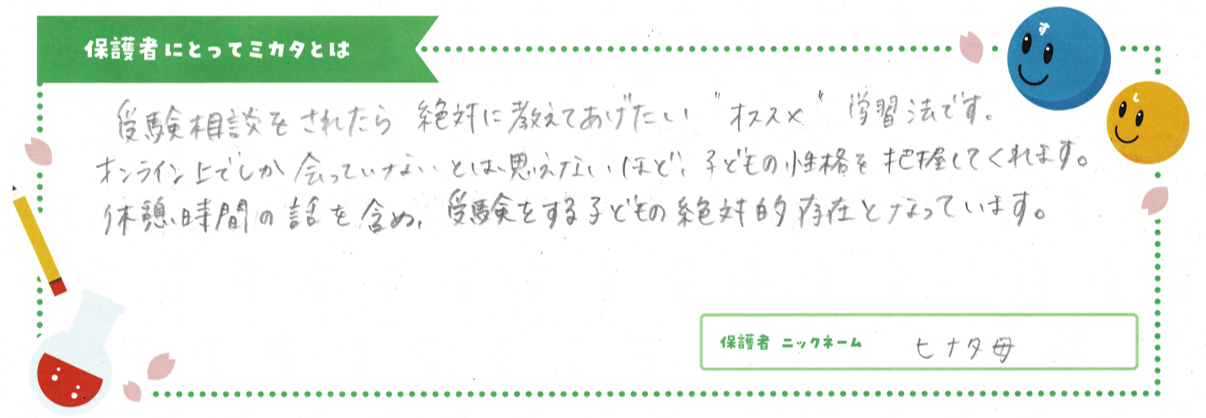 保護者にとってミカタとは
す
し
受験相談をされたら 絶対に教えてあげたい "オススメ" 学習法です。
オンライン上でしか会っていないとは思えないほど、子どもの性格を把握してくれます。
休憩時間の話を含め、受験をする子どもの絶対的存在となっています。
保護者 ニックネーム ヒナタ母